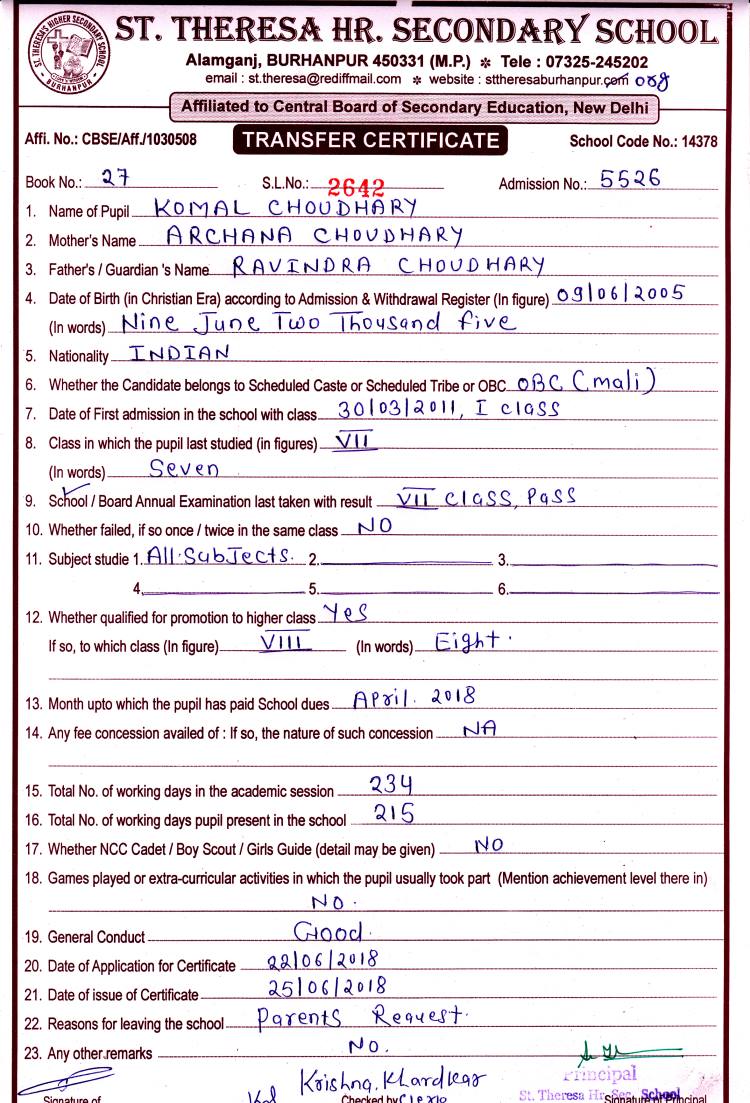 ST. THERESA'S HIGHER SECONDARY SCHOOL
BURHANPUR
ST. THERESA HR. SECONDARY SCHOOL
Alamganj, BURHANPUR 450331 (M.P.) * Tele : 07325-245202
email : st.theresa@rediffmail.com * website : sttheresaburhanpur.com org
Affiliated to Central Board of Secondary Education, New Delhi
Affi. No.: CBSE/Aff./1030508 TRANSFER CERTIFICATE School Code No.: 14378
Book No.: 27 S.L.No.: 2642 Admission No.: 5526
1. Name of Pupil KOMAL CHOUDHARY
2. Mother's Name ARCHANA CHOUDHARY
3. Father's / Guardian 's Name RAVINDRA CHOUDHARY
4. Date of Birth (in Christian Era) according to Admission & Withdrawal Register (In figure) 09/06/2005
(In words) Nine June Two Thousand five
5. Nationality INDIAN
6. Whether the Candidate belongs to Scheduled Caste or Scheduled Tribe or OBC OBC (mali)
7. Date of First admission in the school with class 30/03/2011, I class
8. Class in which the pupil last studied (in figures) VII
(In words) Seven
9. School / Board Annual Examination last taken with result VII class, Pass
10. Whether failed, if so once / twice in the same class NO
11. Subject studie 1. All Subjects. 2. 3.
4. 5. 6.
12. Whether qualified for promotion to higher class Yes
If so, to which class (In figure) VIII (In words) Eight.
13. Month upto which the pupil has paid School dues April. 2018
14. Any fee concession availed of : If so, the nature of such concession NA
15. Total No. of working days in the academic session 234
16. Total No. of working days pupil present in the school 215
17. Whether NCC Cadet / Boy Scout / Girls Guide (detail may be given) NO
18. Games played or extra-curricular activities in which the pupil usually took part (Mention achievement level there in)
NO.
19. General Conduct Good.
20. Date of Application for Certificate 22/06/2018
21. Date of issue of Certificate 25/06/2018
22. Reasons for leaving the school Parents Request.
23. Any other.remarks NO.
Krishna. Khardkar
Principal
St. Theresa Hr. Sec. School
Signature of Checked by Clerk Signature of Principal